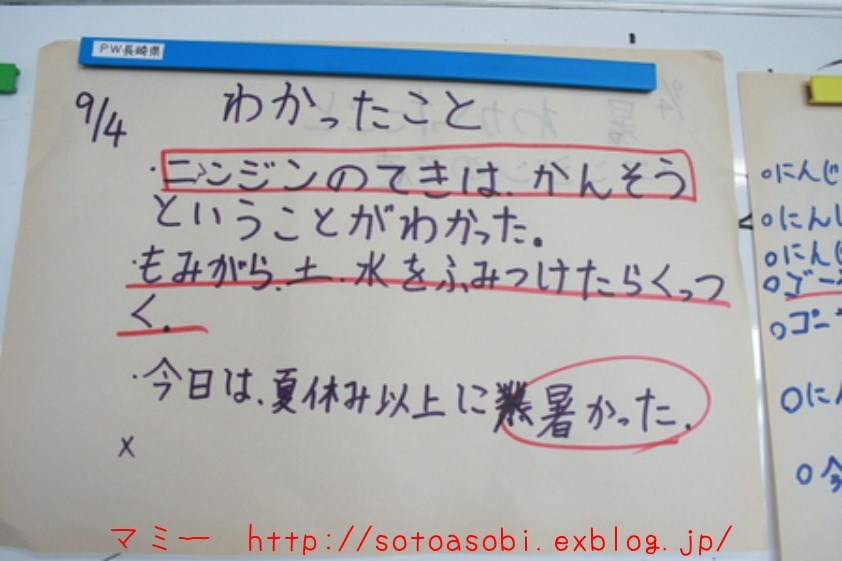 PW長崎県
9/4 わかったこと
・ニンジンのてきは、かんそう
ということがわかった。
・もみがら、土、水をふみつけたらくっつ
く。
・今日は、夏休み以上に暑かった。
x
○にんじ
○にんし
○にんじ
○ゴー
○ゴー
○に
○今
マミー http://sotoasobi.exblog.jp/